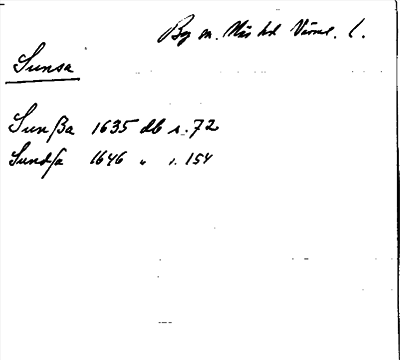 By m. Näs hd Värml. l.
Sunsa
Sunßa 1635 db s. 72
Sundsa 1646 " s. 154